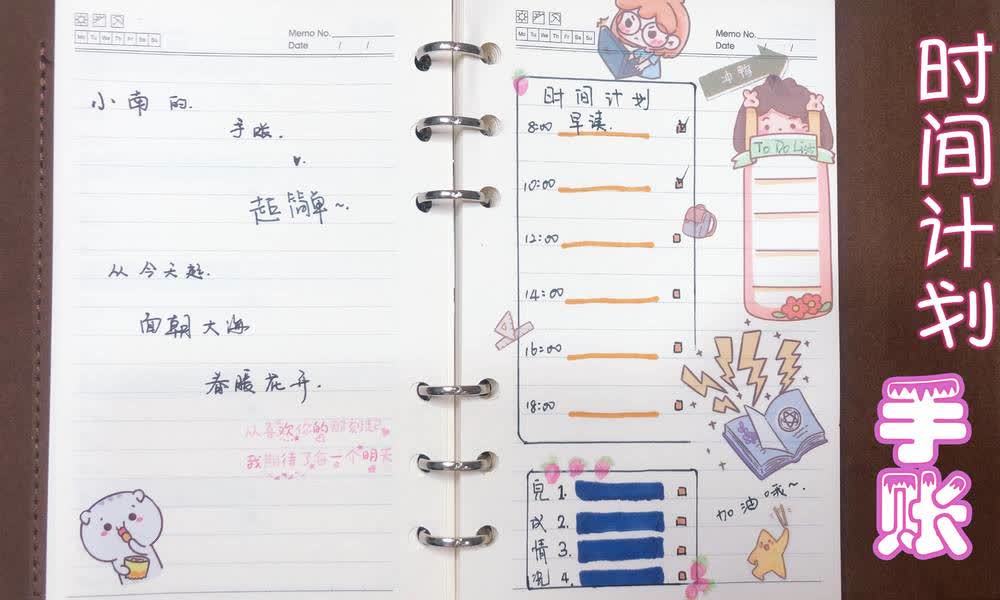 Mo Tu We Th Fr Sa Su
Memo No.
Date / /
小南的.
手账.
超简单~.
从今天起.
面朝大海
春暖花开.
从喜欢你的那刻起
我期待了每一个明天
Mo Tu We Th Fr Sa Su
Memo No.
Date / /
冲鸭
时间计划
8:00 早读.
10:00
12:00
14:00
16:00
18:00
To Do List
完 1.
成 2.
情 3.
况 4.
加油哦~.
时间计划
手账